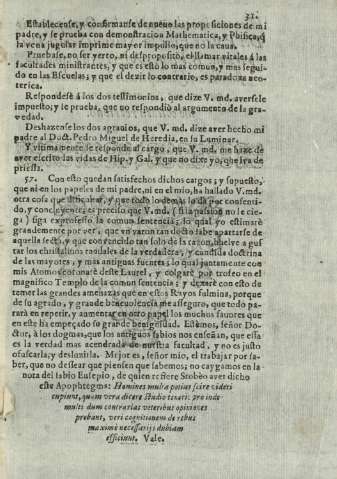 31.
Establecense, y confirmanse de nuevo las proposiciones de mi
padre, y se prueba con demonstracion Mathematica, y Phisica, q̃
la vena jugular imprime mayor impulso, que no la caua.
Pruebase, no ser yerro, ni desproposito, el llamar vitales á las
facultades ministrantes, y que es esto lo mas comun, y mas segui-
do en las Escuelas; y que el dezir lo contrario, es paradoxa eso-
terica.
Respondese á los dos testimonios, que dize V. md. aversele
impuesto; y se prueba, que no respondió al argumento de la gra-
vedad.
Deshazense los dos agravios, que V. md. dize aver hecho mi
padre al Doct. Pedro Miguel de Heredia, en su Luminar.
Y vltimamente se responde al cargo, que V. md. me haze de
aver escrito las vidas de Hip. y Gal. y que no dize yo, que iva de
priessa.
57. Con esto quedan satisfechos dichos cargos; y supuesto,
que ni en los papeles de mi padre, ni en el mio, ha hallado V. md.
otra cosa que y que todo lo demás lo da por consenti-
do, y concluyente; es preciso que V. md. (si la passion no le cie-
ga) siga exprofesso la comun sentencia; lo qual yo estimaré
grandemente por ver, que vn varon tan docto sabe apartarse de
aquella secta, y que convencido tan solo de la razon, buelve a gus-
tar los christalinos raudales de la verdadera, y candida doctrina
de las mayores, y mas antiguas fuentes; lo qual juntamente con
mis Atomos coronaré deste Laurel, y colgaré por trofeo en el
magnifico Templo de la comun sentencia; y dexaré con esto de
temer las grandes amenazas que en estos Rayos fulmina, porque
de su agrado, y grande benevolencia me asseguro, que todo pa-
rará en repetir, y aumentar en otro papel los muchos favores que
en este ha empeçado su grande benignidad. Estémos, señor Doc-
tor, à los dogmas, que los antiguos sabios nos enseñan, que essa
es la verdad mas acendrada de nuestra facultad, y no es justo
ofuscarla, y deslustrla. Mejor es, señor mio, el trabajar por sa-
ber, que no desear que piensen que sabemos; no caygamos en la
nota del sabio Eusepio, de quien refiere Stobèo aver dicho
este Apophtegma: Homines multa potius scire videri
cupiunt, quam vera dicere studio tenati: proinde
multi dum contrarias veteribus opiniones
probant, veri cognitionem de rebus
maximè necessarijs dubiam
efficiunt. Vale.